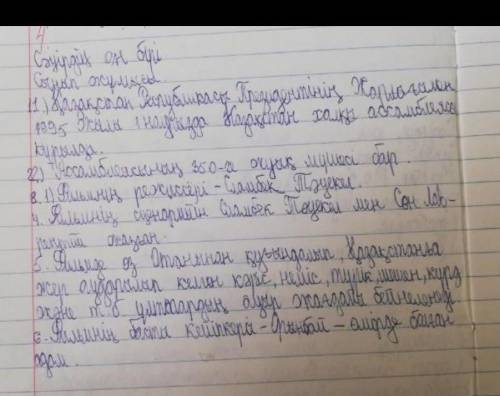 4
Сәуірдің он бірі
Сынып жұмысы
1) Қазақстан Республикасы Президентінің Жарлығымен
1995 жылы 1 наурызда Қазақстан халқы ассамблеясы
құрылды.
2) Ассамблеясының 350-ге жуық мүшесі бар.
3. 1) Фильмнің режиссері - Сламбек Тәуекел.
4. Фильмнің сценарийін Сламбек Тәуекел мен Сон Лав-
рентий жазған.
5. Фильмде өз Отанынан қуғындалып, Қазақстанға
жер аударылып келген кәріс, неміс, түрік, шешен, күрд
және т.б ұлттардың ауыр жағдайы бейнеленеді
6. Фильмнің басты кейіпкері - Орынбай - өмірде болған
адам.